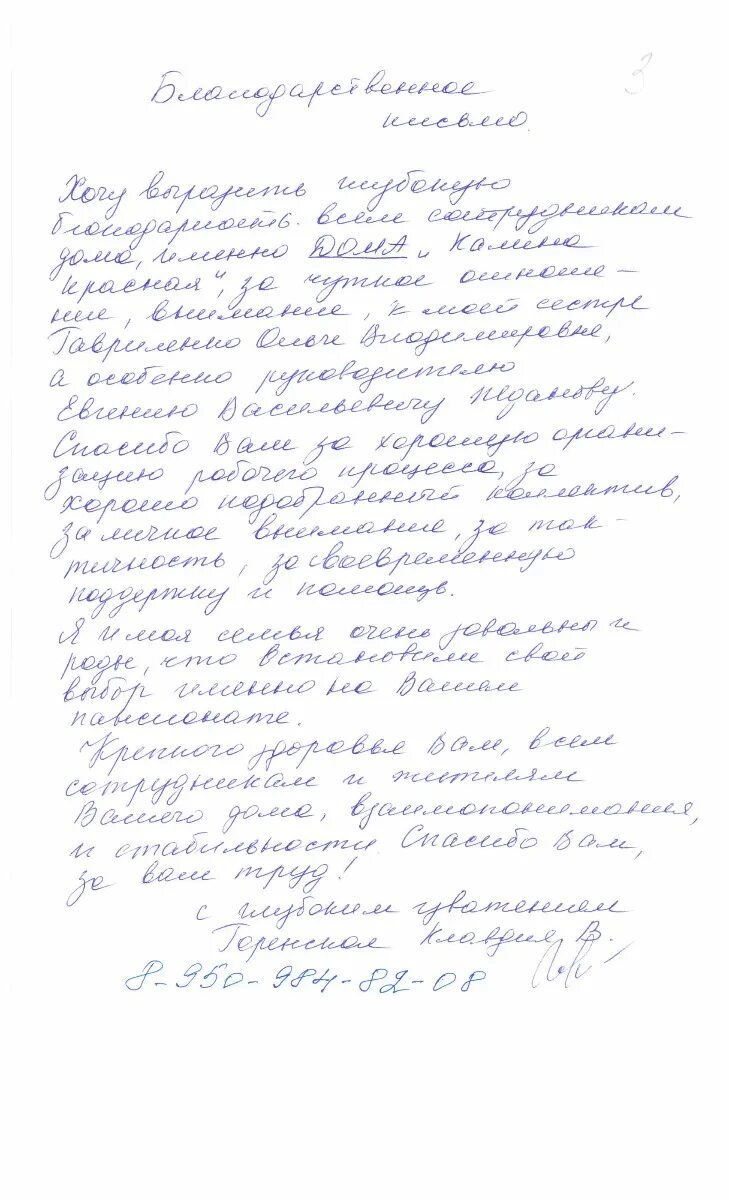 3
Благодарственное
письмо.
Хочу выразить глубокую
благодарность всем сотрудникам
дома, именно ДОМА „Калина
красная", за чуткое отноше-
ние, внимание, к моей сестре
Гавриленко Ольге Владимировне,
а особенно руководителю
Евгению Васильевичу Жданову.
Спасибо Вам за хорошую органи-
зацию рабочего процесса, за
хорошо подобранный коллектив,
за личное внимание, за так-
тичность, за своевременную
поддержку и помощь.
Я и моя семья очень довольны и
рады, что остановили свой
выбор именно на Вашем
пансионате.
Крепкого здоровья Вам, всем
сотрудникам и жителям
Вашего дома, взаимопонимания,
и стабильности. Спасибо Вам,
за ваш труд!
с глубоким уважением
Горенская Клавдия В.
8-950-984-82-08